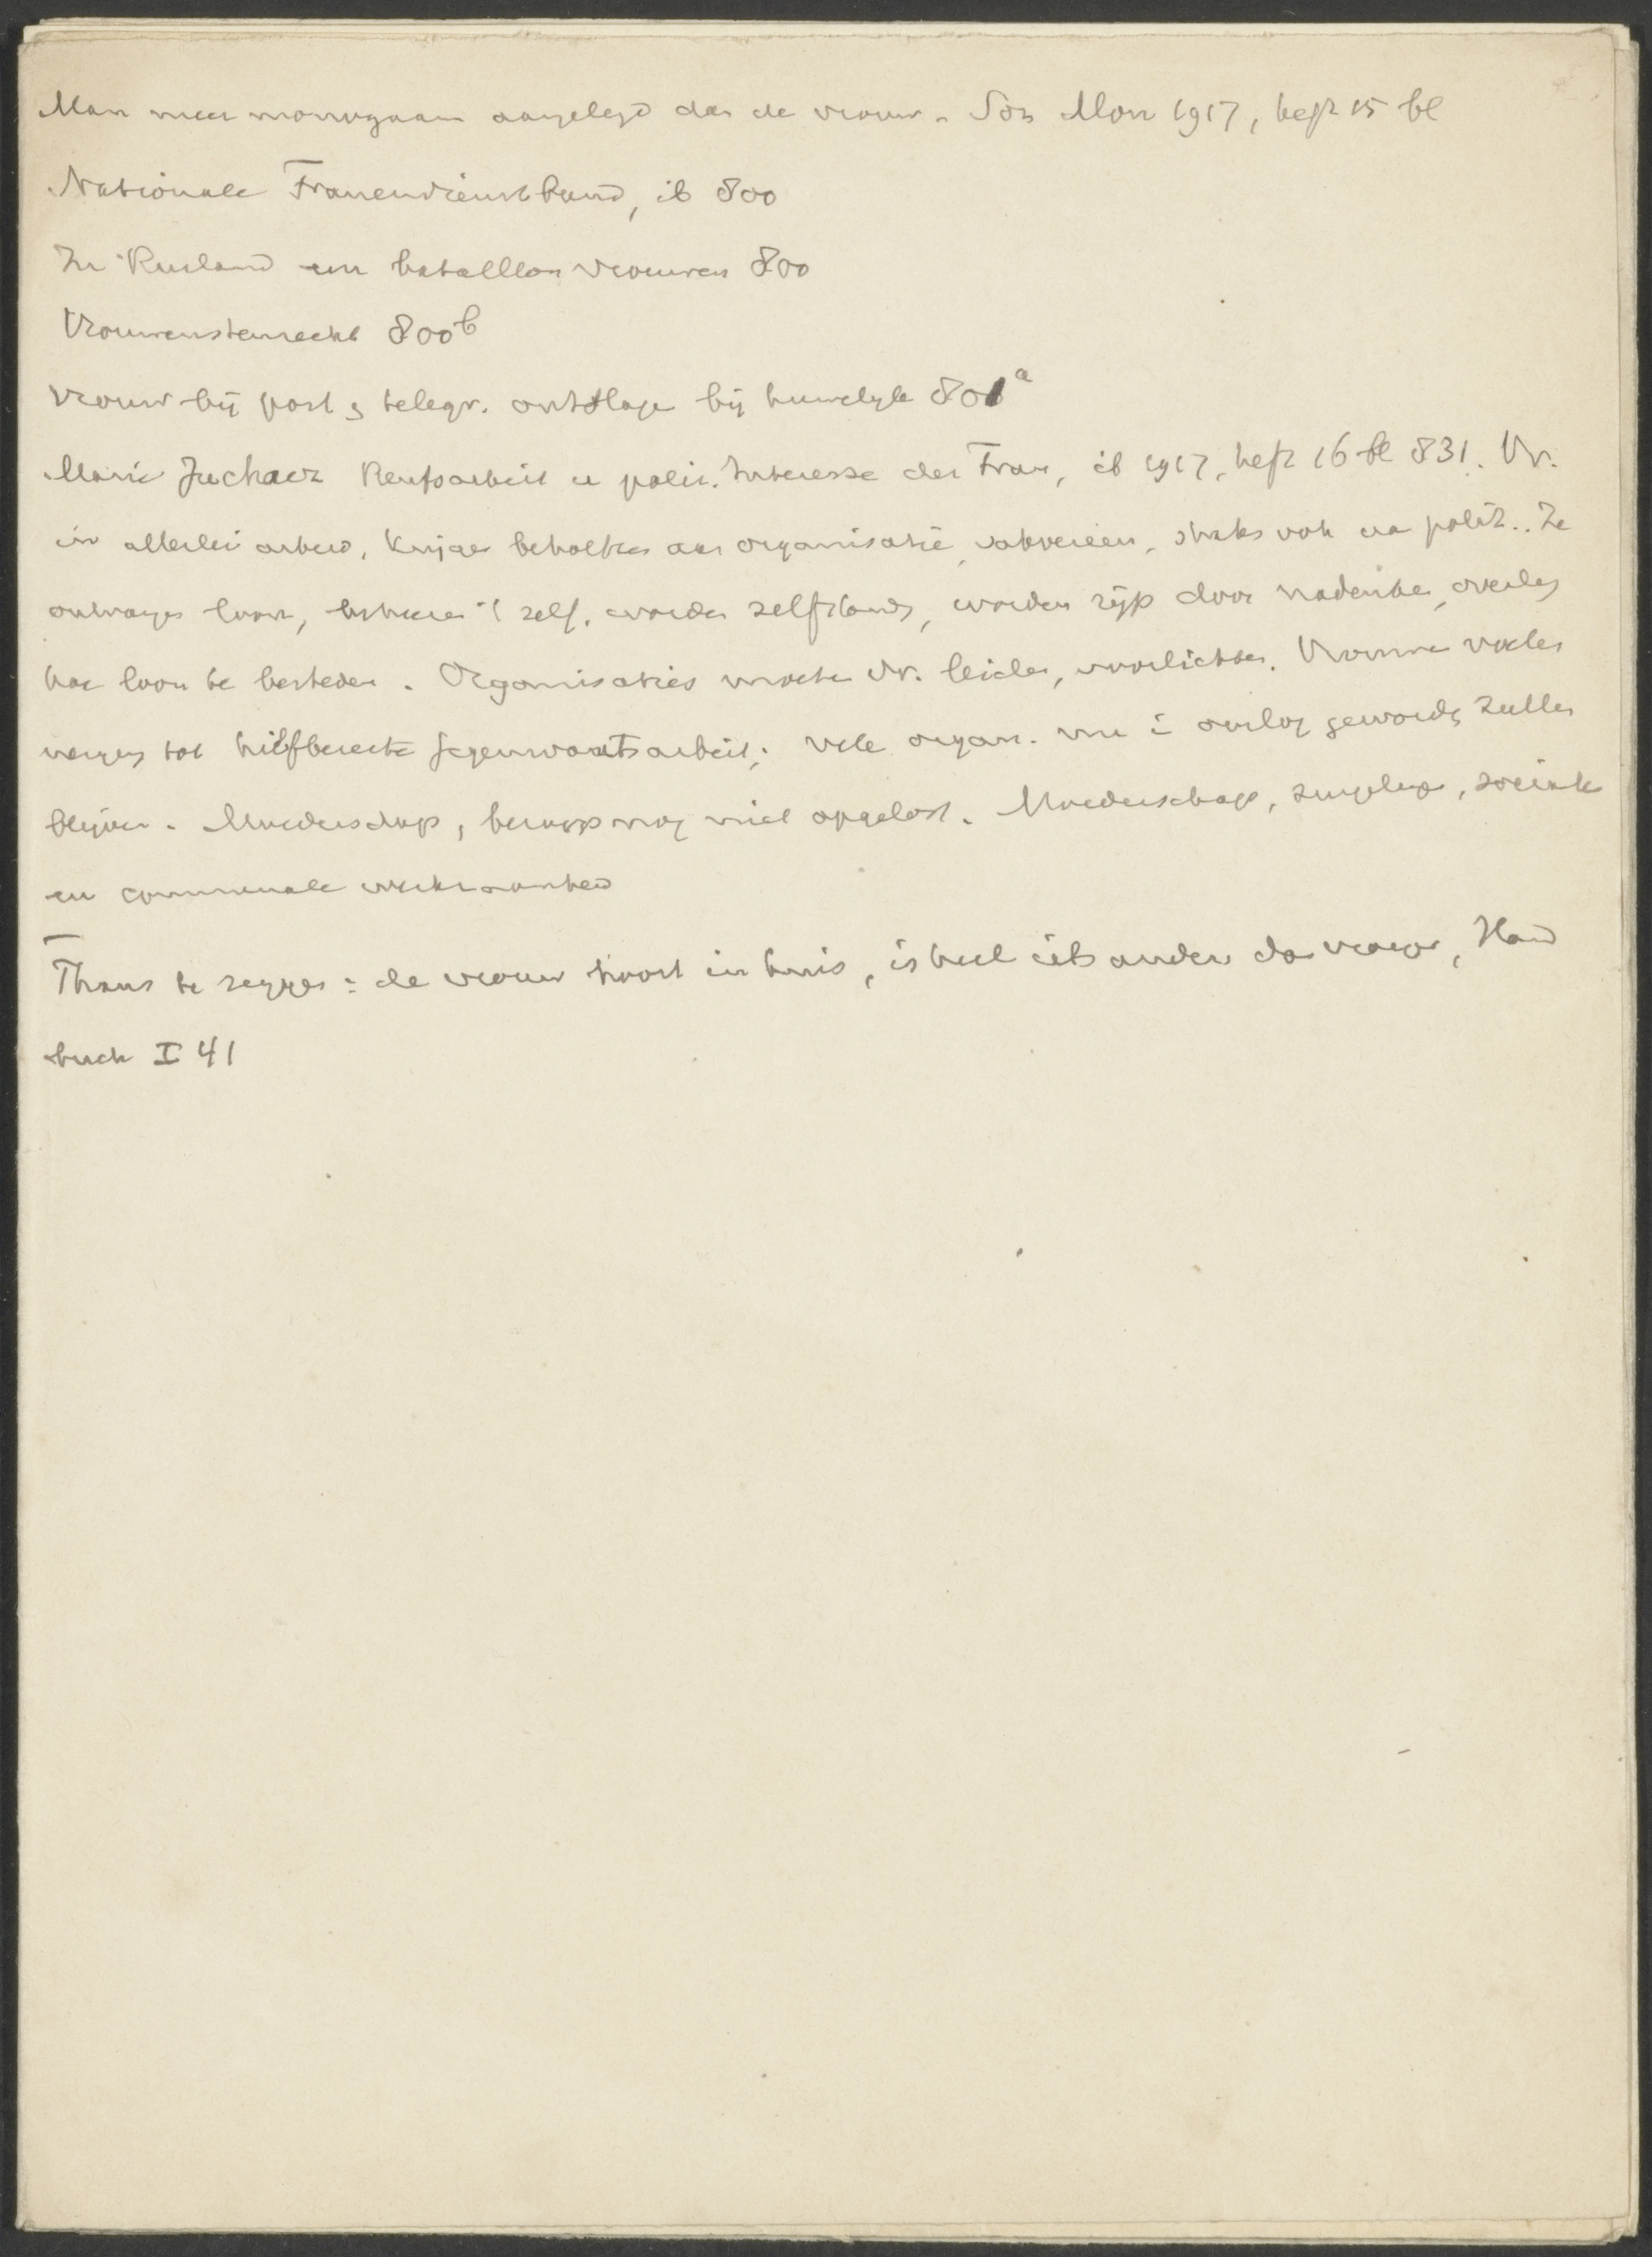 Man meer monogaam aangelegd dan de vrouw. Soz Mon 1917, heft 15 bl
Nationale Frauendienstbund, ib 800
In Rusland een batallion vrouwen 800
Vrouwenstemrecht 800b
Vrouw bij post & telegr. ontslage bij huwelijk 801a
Marie Juchacz Berufsarbeit u polit. Interesse der Frau, ib 1917, heft 16 bl 831. Vr.
in allerlei arbeid, krijgen behoefte aan organisatie, vakvereen, straks ook en polit.. Ze
ontvangen loon, beheren 't zelf, worden zelfstandg, worden rijp door nadenken, overleg
hoe loon te besteden. Organisaties moeten vr. leiden, voorlichten. Vrouwen voelen
neigng tot hilfbereite Gegenwartsarbeit; vele organ. nu i oorlog gewordg zullen
blijven. Moederschap, beroep nog niet opgelost. Moederschap, zuigeling, sociale
en communale werkzaamheid
Thans te zeggen: de vrouw hoort in huis, is heel iets anders dan vroeger, Hand
buch I 41